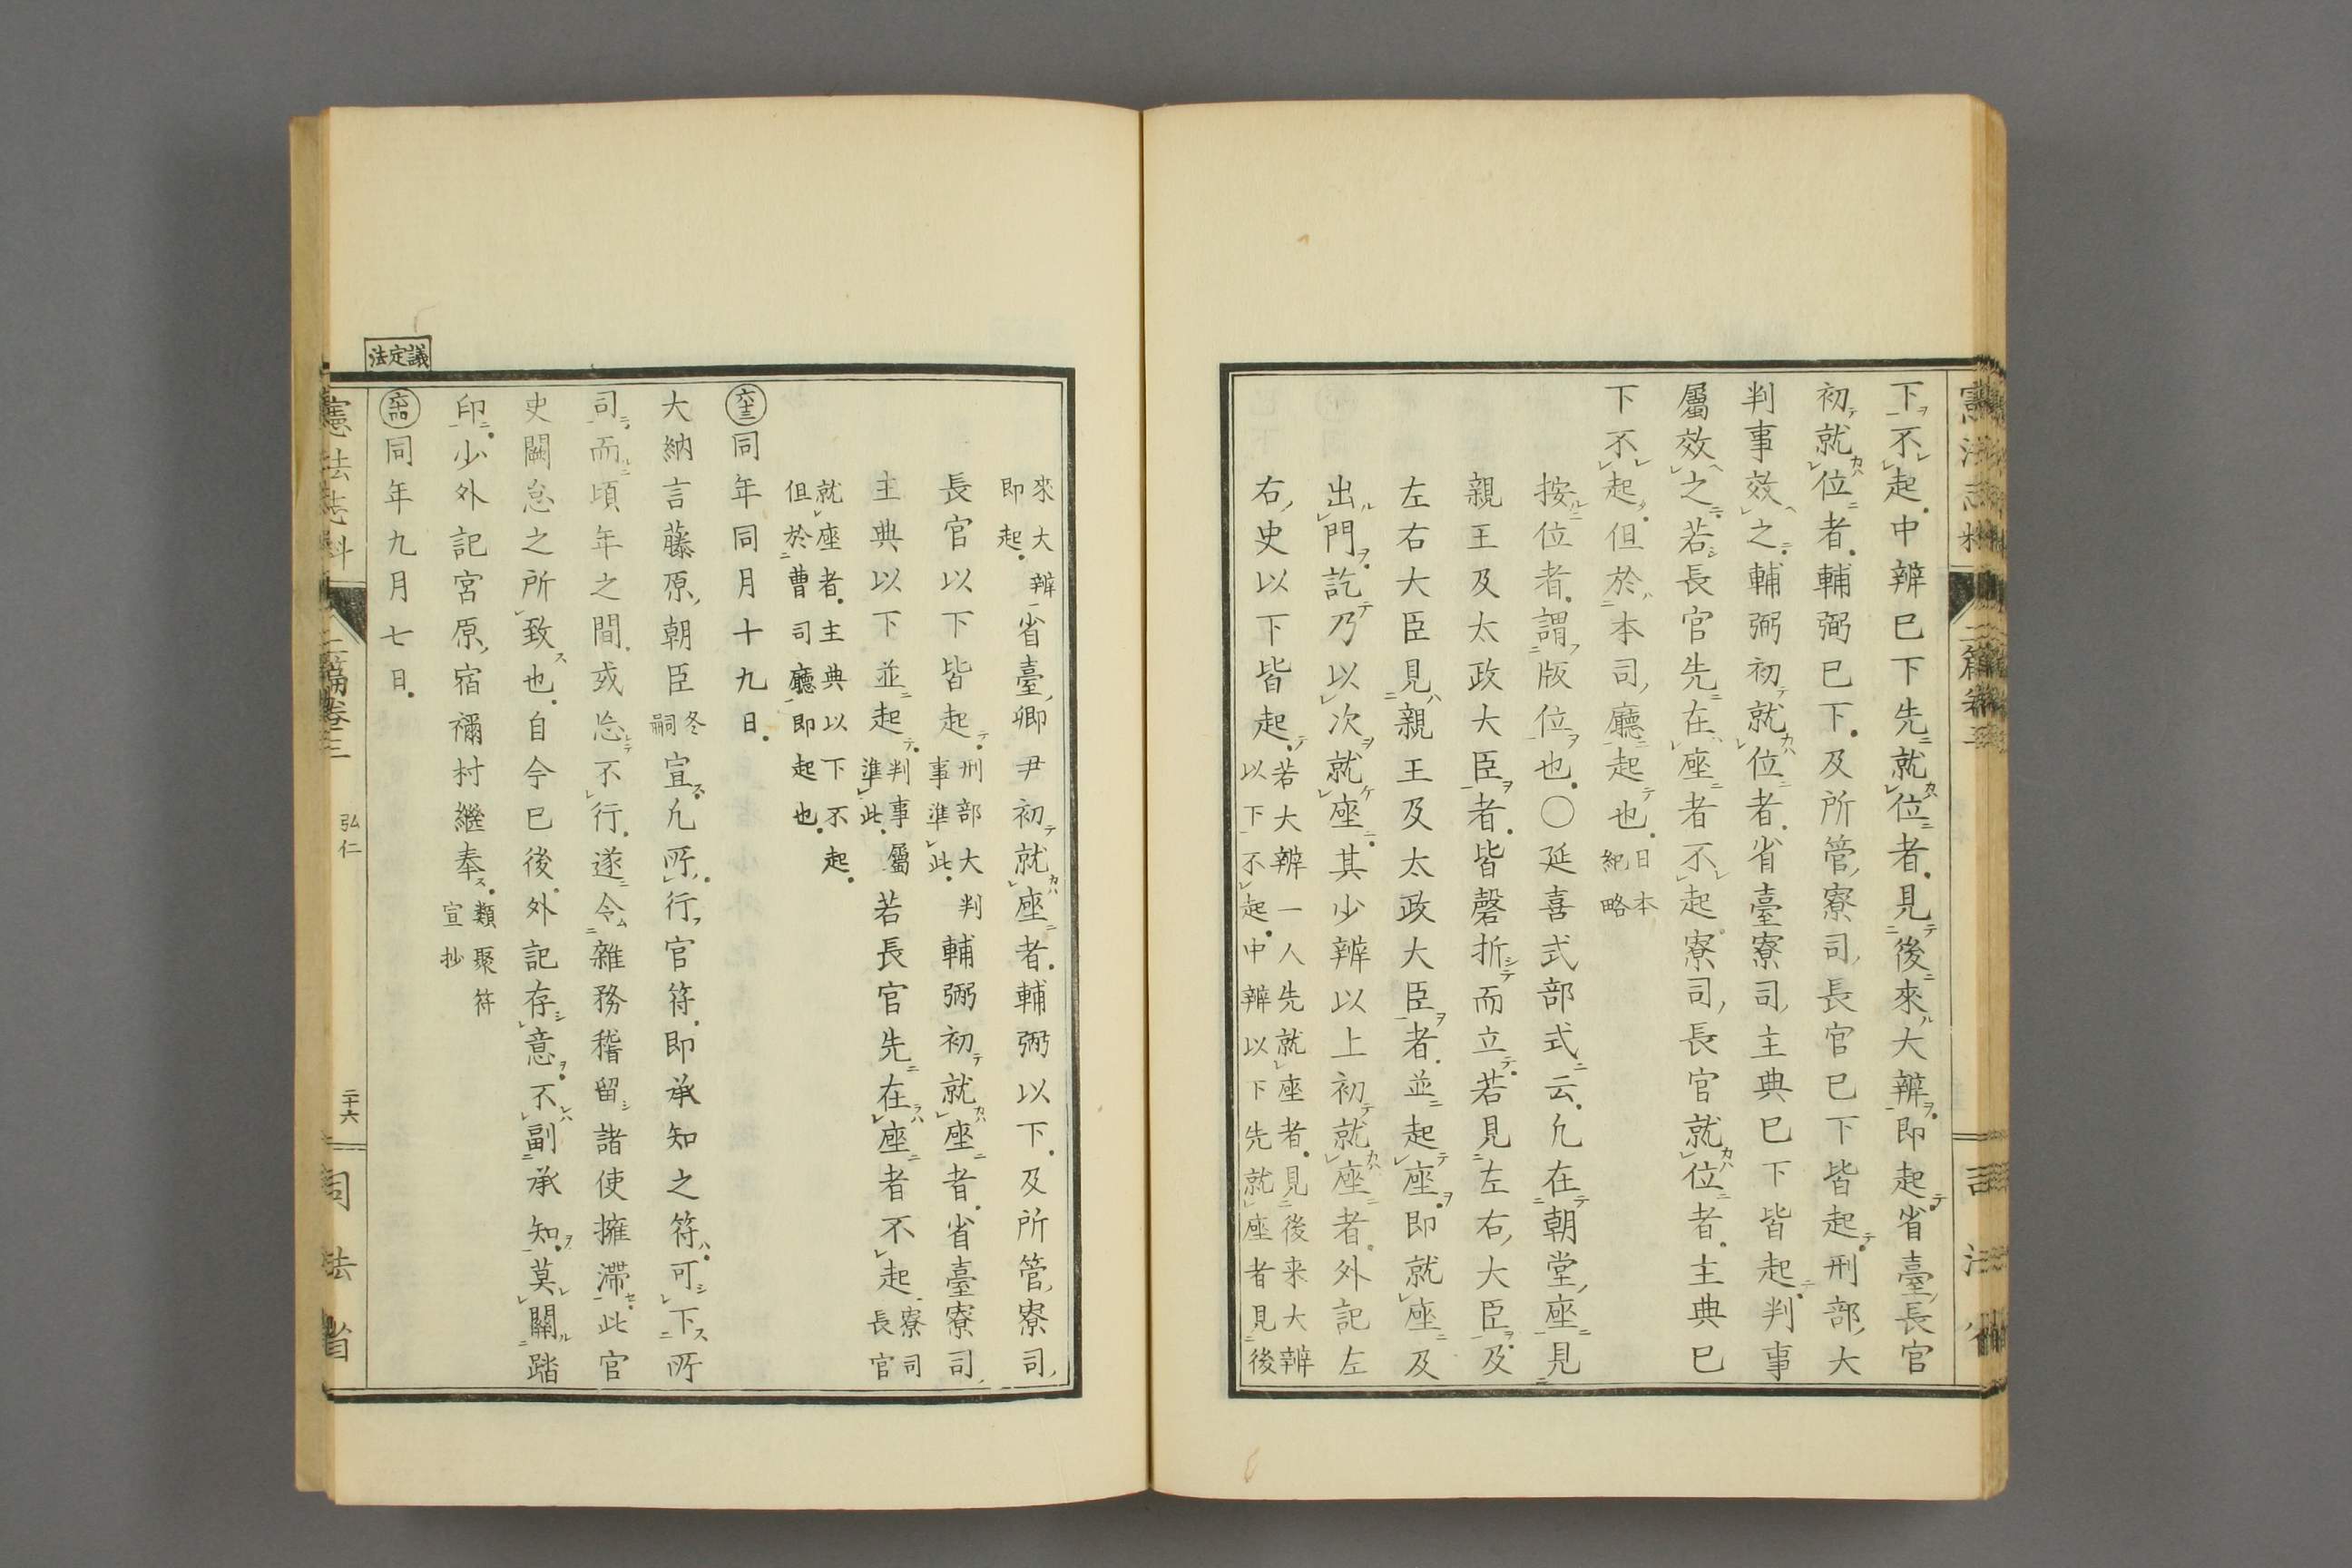 下不起。中辨已下先就位者。見後來大辨即起。省臺長官
初就位者。輔弼已下。及所管寮司長官已下皆起。刑部大
判事效之。輔弼初就位者。省臺寮司主典已下皆起。判事
屬效之。若長官先在座者不起。寮司長官就位者。主典已
下不起。但於本司廳起也。日本紀略
按位者。謂版位也。〇延喜式部式云。凡在朝堂座見
親王及太政大臣者。皆磬折而立。若見左右大臣。及
左右大臣見親王及太政大臣者。並起座。即就座及
出門。訖乃以次就座。其少辨以上初就座者。外記左
右史以下皆起。若大辨一人先就座者。見後來大辨
以下不起。中辨以下先就座者見後
來大辨
即起。省臺卿尹初就座者。輔弼以下。及所管寮司
長官以下皆起。刑部大判事準此。輔弼初就座者。省臺寮司
主典以下並起。判事屬準此。若長官先在座者不起。寮司長官
就座者。主典以下不起。
但於曹司廳即起也。
六十三 同年同月十九日。
大納言藤原朝臣冬嗣宣。凡所行官符。即承知之符。可下所
司。而頃年之間。或忘不行。遂令雜務稽留諸使擁滯。此官
史闕怠之所致也。自今已後。外記存意。不副承知。莫關踏
印。少外記宮原宿禰村繼奉。類聚符宣抄
六十四 同年九月七日。
議定法
憲法志料
二篇卷三
弘仁
二十六
司法省